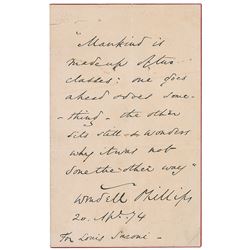 "Mankind is
made up of two
classes: one goes
ahead & does some-
-thing - the other
sits still & wonders
why it was not
done the other way"
Wendell Phillips
20. Apl. 74
For Louis